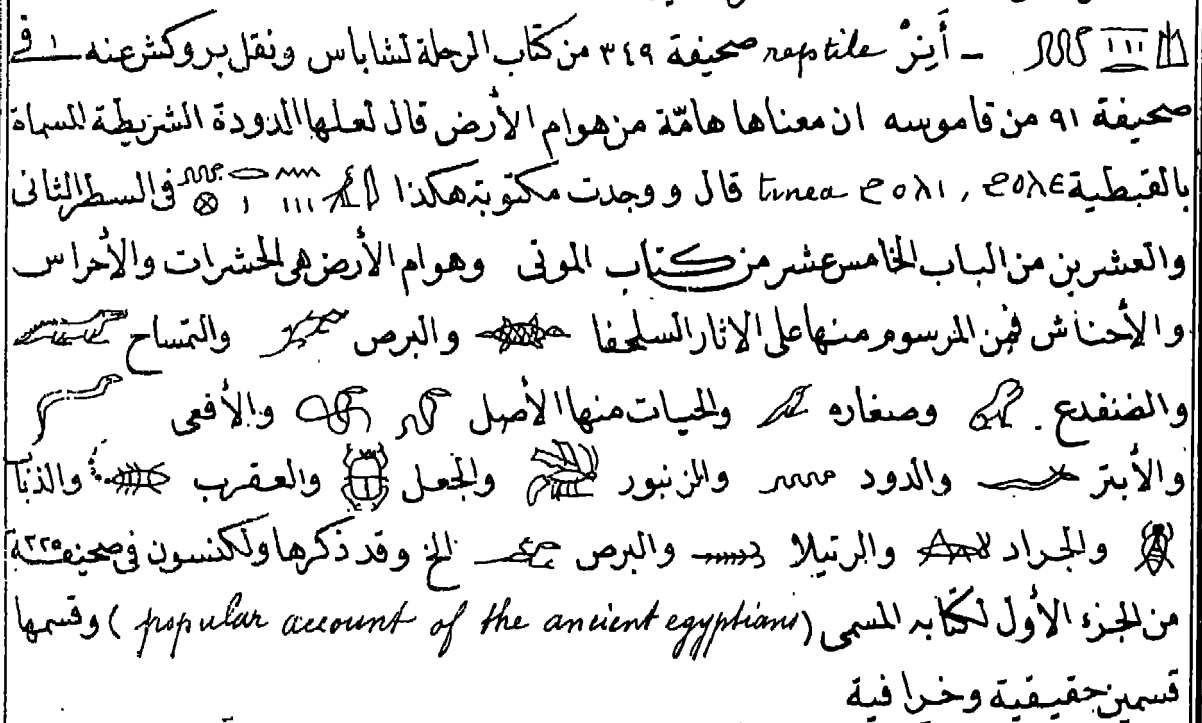 – أَينرْ reptile صحيفة ٣٤٩ من كتاب الرحلة لشاباس ونقل بروكش عنه فى
صحيفة ٩١ من قاموسه ان معناها هامّة من هوام الأرض قال لعلها الدودة الشريطة المسماة
بالقبطية ϩⲟⲗⲓ , ϩⲟⲗⲉ tinea قال ووجدت مكتوبة هكذا فى السطر الثانى
والعشرين من الباب الخامس عشر من كتاب الموتى وهوام الأرض هى الحشرات والأحراس
والأحناش فمن المرسوم منها على الاثار السلحفا والبرص والتمساح
والضنفدع . وصغاره والحيات منها الأصل والأفعى
والأبتر والدود والزنبور والجعل والعقرب والذباب
والجراد والرتيلا والبرص الخ وقد ذكرها ولكنسون فى صحيفة ٢٢٥
من الجزء الأول لكتابه المسمى (popular account of the ancient egyptians) وقسمها
قسمين حقيقية وخرافية